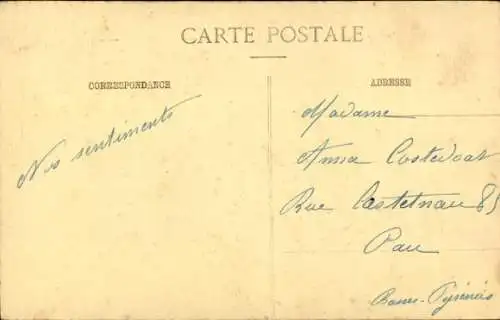 CARTE POSTALE
CORRESPONDANCE
ADRESSE
Nos sentiments
Madame
Anna Costedoat
Rue Castetnau 85
Pau
Basses-Pyrénées